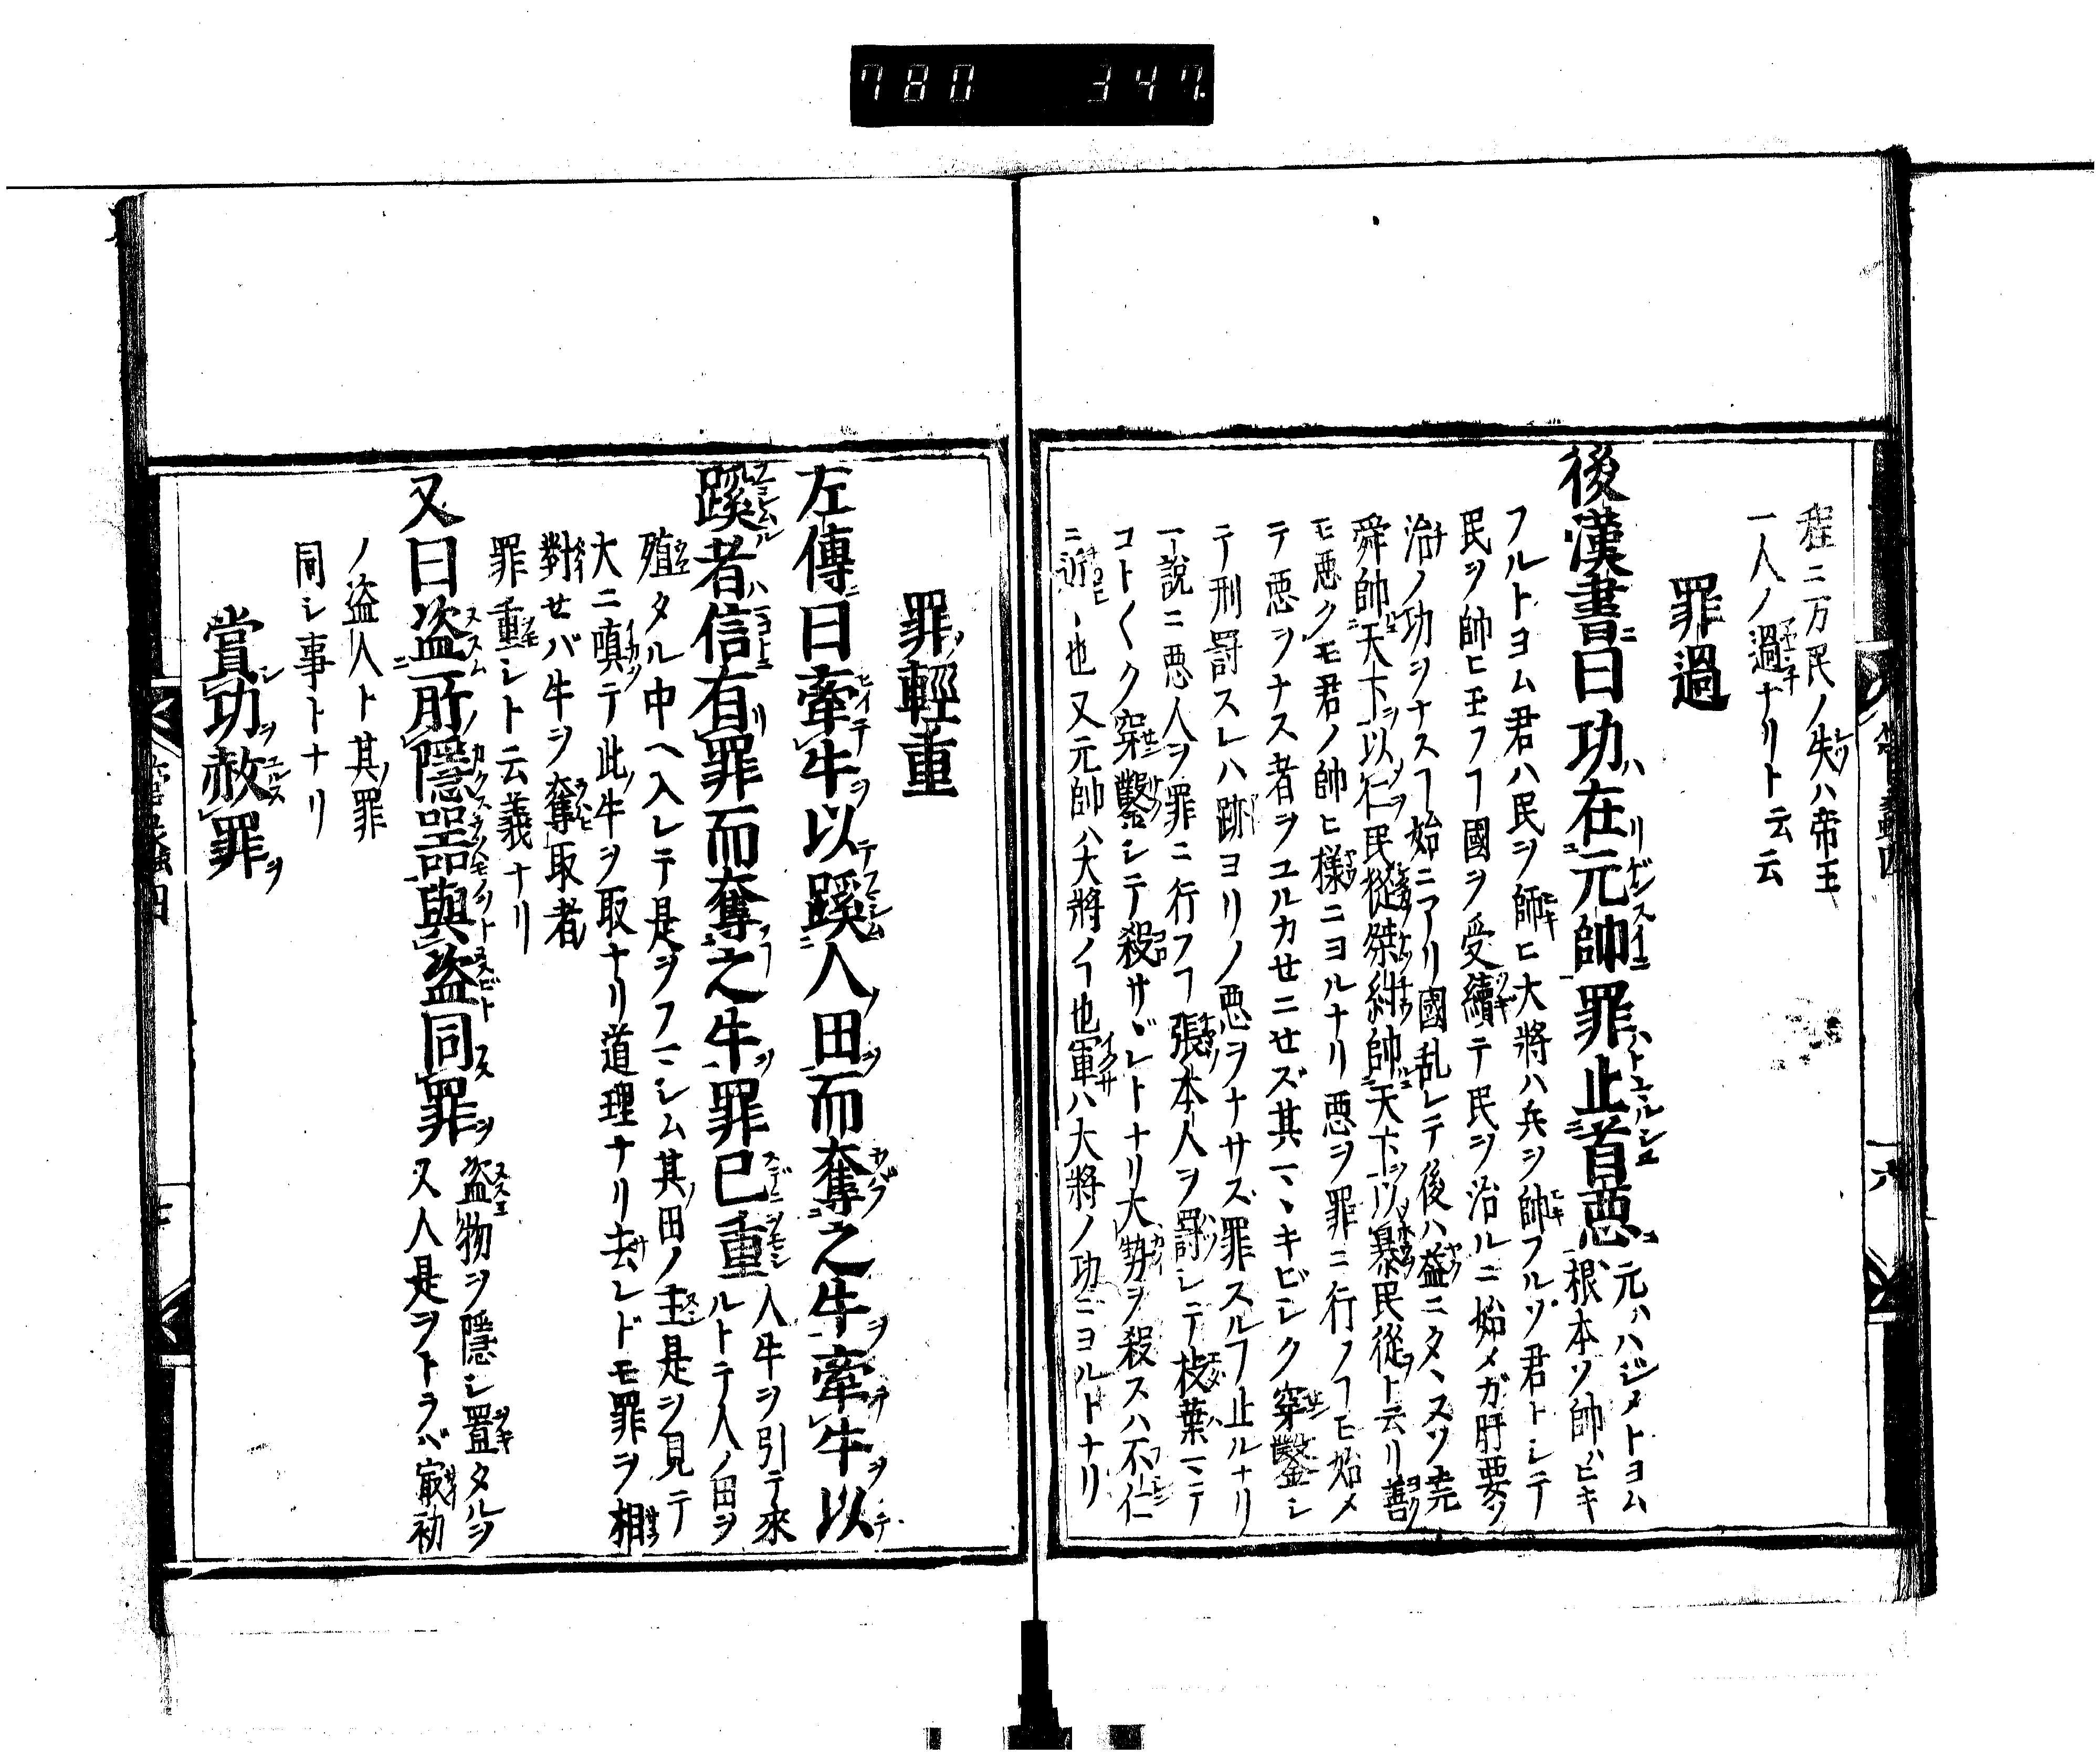 780 347
程ニ万民ノ失ハ帝王
一人ノ過ナリト云云
罪過
後漢書曰功在元帥罪止首惡元ハハジメトヨム
根本ソ帥ハヒキ
フルトヨム君ハ民ヲ帥ヒ大將ハ兵ヲ帥フルソ君トシテ
民ヲ帥ヒ玉フヿ國ヲ受續テ民ヲ治ルニ始メガ肝要ソ
治ノ功ヲナスヿ始ニアリ國乱レテ後ハ益ニタヽヌソ堯
舜帥天下以仁民從桀紂帥天下以暴民從ト云リ善
モ悪クモ君ノ帥ヒ樣ニヨルナリ悪ヲ罪ニ行フヿモ始メ
テ悪ヲナス者ヲユルカセニせズ其マヽキビシク穿鑿シ
テ刑罸スレハ跡ヨリノ悪ヲナサズ罪スルヿ止ルナリ
一説ニ悪人ヲ罪ニ行フヿ張本人ヲ罸シテ枝葉マテ
コト〱ク穿鑿シテ殺サヾレトナリ大勢ヲ殺スハ不仁
ニ近シ也又元帥ハ大將ノヿ也軍ハ大將ノ功ニヨルトナリ
罪輕重
左傳曰牽牛以蹊人田而奪之牛牽牛以
蹊者信有罪而奪之牛罪已重人牛ヲ引テ來
ルトテ人ノ田ヲ
殖タル中ヘ入レテ是ヲフマシム其田ノ主是ヲ見テ
大ニ嗔テ此牛ヲ取ナリ道理ナリ去レドモ罪ヲ相
對せバ牛ヲ奪取者
罪重シト云義ナリ
又曰盗所隱器與盗同罪盗物ヲ隱シ置タルヲ
又人是ヲトラバ冣初
ノ盗人ト其罪
同シ事トナリ
賞功赦罪